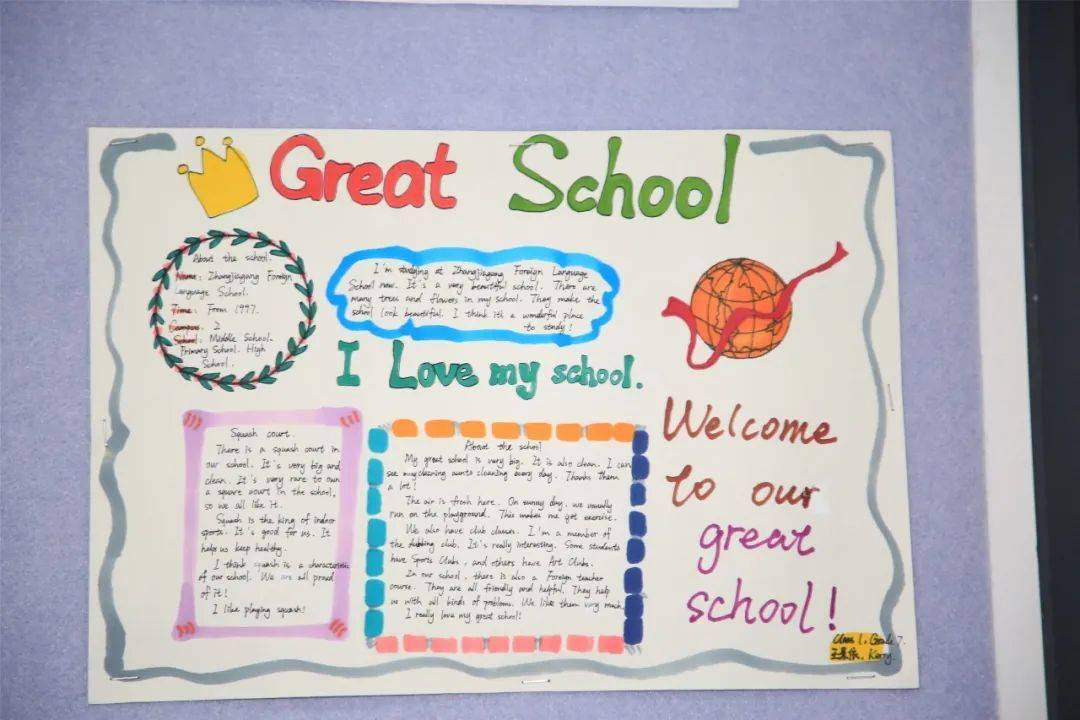 Great School
About the school.
Name: Zhangjiagang Foreign
Language School.
Time: From 1997.
Campus. 2
School: Middle School.
Primary School. High
School.
I'm studying at Zhangjiagang Foreign Language
School now. It's a very beautiful school. There are
many trees and flowers in my school. They make the
school look beautiful. I think it's a wonderful place
to study!
I Love my school.
Squash court.
There is a squash court in
our school. It's very big and
clean. It's very rare to own
a square court in the school,
so we all like it.
Squash is the king of indoor
sports. It's good for us. It
helps us keep healthy.
I think squash is a characteristic
of our school. We are all proud
of it!
I like playing squash!
About the school
My great school is very big. It is also clean. I can
see my cleaning aunts cleaning every day. Thanks them
a lot!
The air is fresh here. On sunny day, we usually
run on the playground. This makes me get exercise.
We also have club classes. I'm a member of
the dubbing club. It's really interesting. Some students
have Sports Clubs, and others have Art Clubs.
In our school, there is also a Foreign teacher
course. They are all friendly and helpful. They help
us with all kinds of problems. We like them very much.
I really love my great school!
Welcome
to our
great
school!
Class 1, Grade 7.
Kerry.